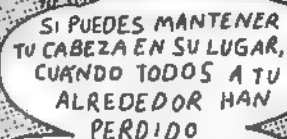 SI PUEDES MANTENER
TU CABEZA EN SU LUGAR,
CUANDO TODOS A TU
ALREDEDOR HAN
PERDIDO